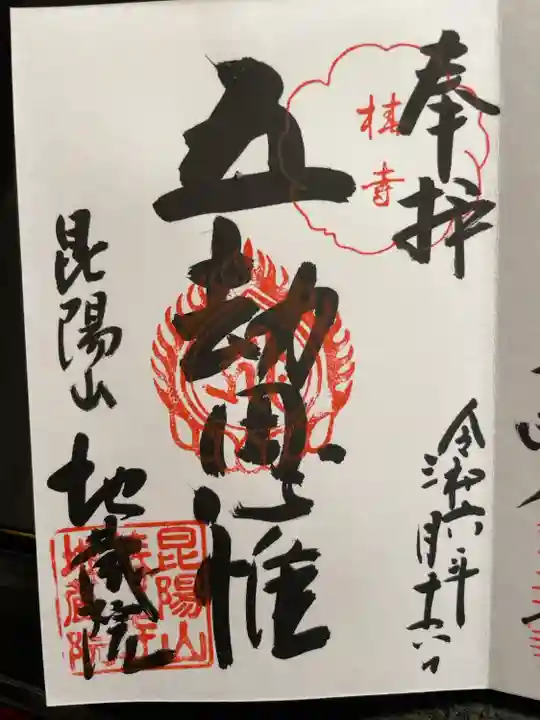 奉拝
椿寺
令和六年
月十六日
五劫思惟
昆陽山
地蔵院
昆陽山
椿寺
地蔵院